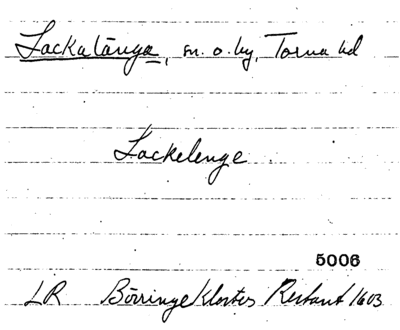 Lackalänga, sn. o. by, Torna hd
Lackelenge
5006
LR Börringe Klosters Restant 1603